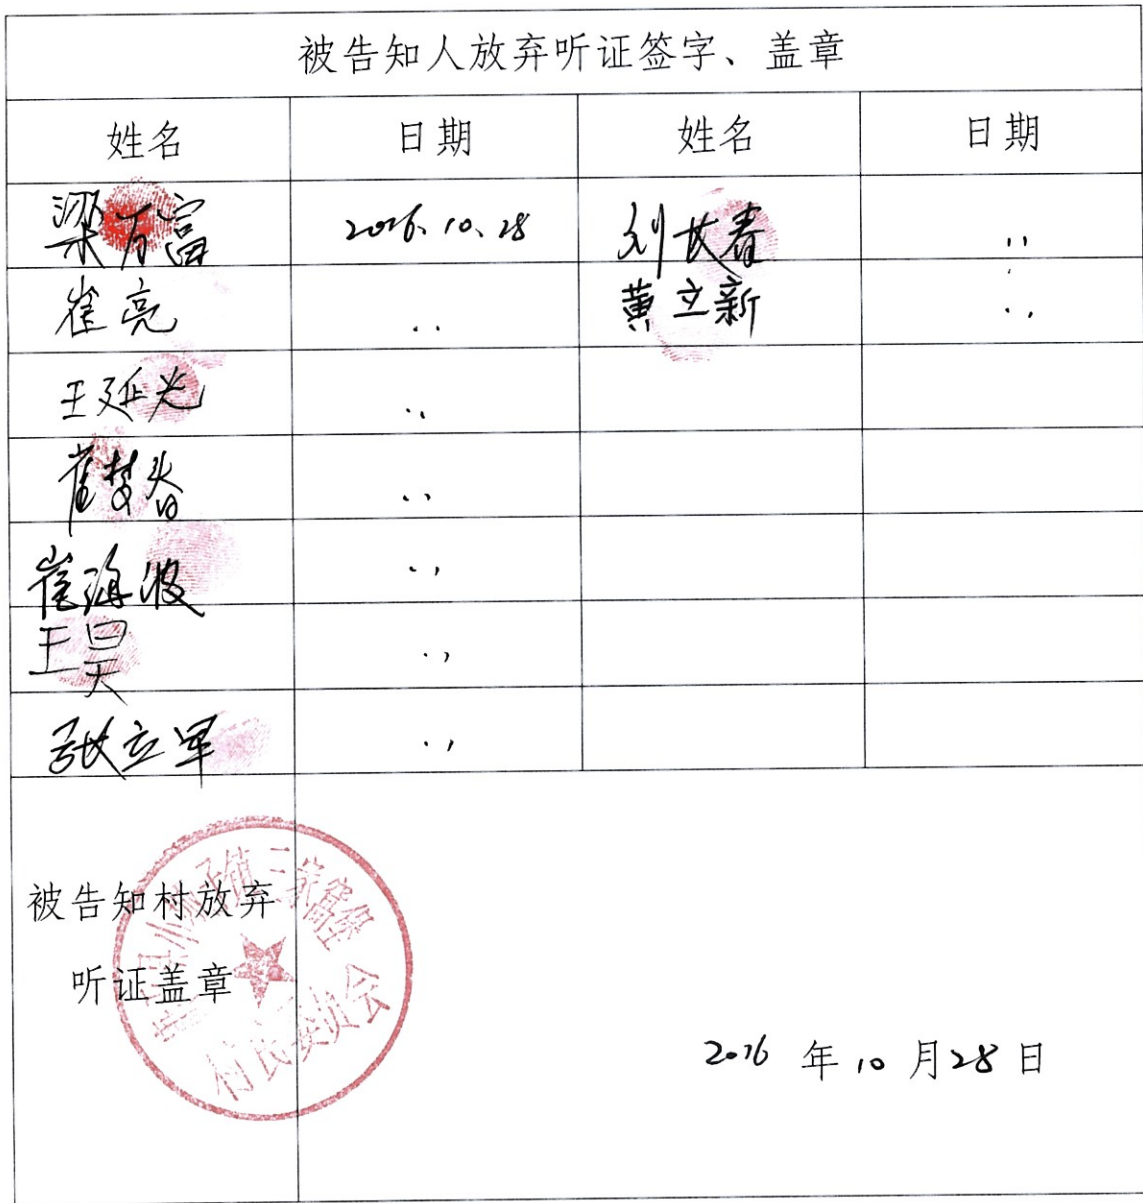 被告知人放弃听证签字、盖章
姓名 日期 姓名 日期
梁万富 2016.10.28 刘长春 〃
崔亮 〃 黄立新 〃
王延光 〃
崔梦春 〃
崔海波 〃
王昊 〃
张立军 〃
被告知村放弃
听证盖章
三家窝堡
村民委员会
2016 年 10 月 28 日